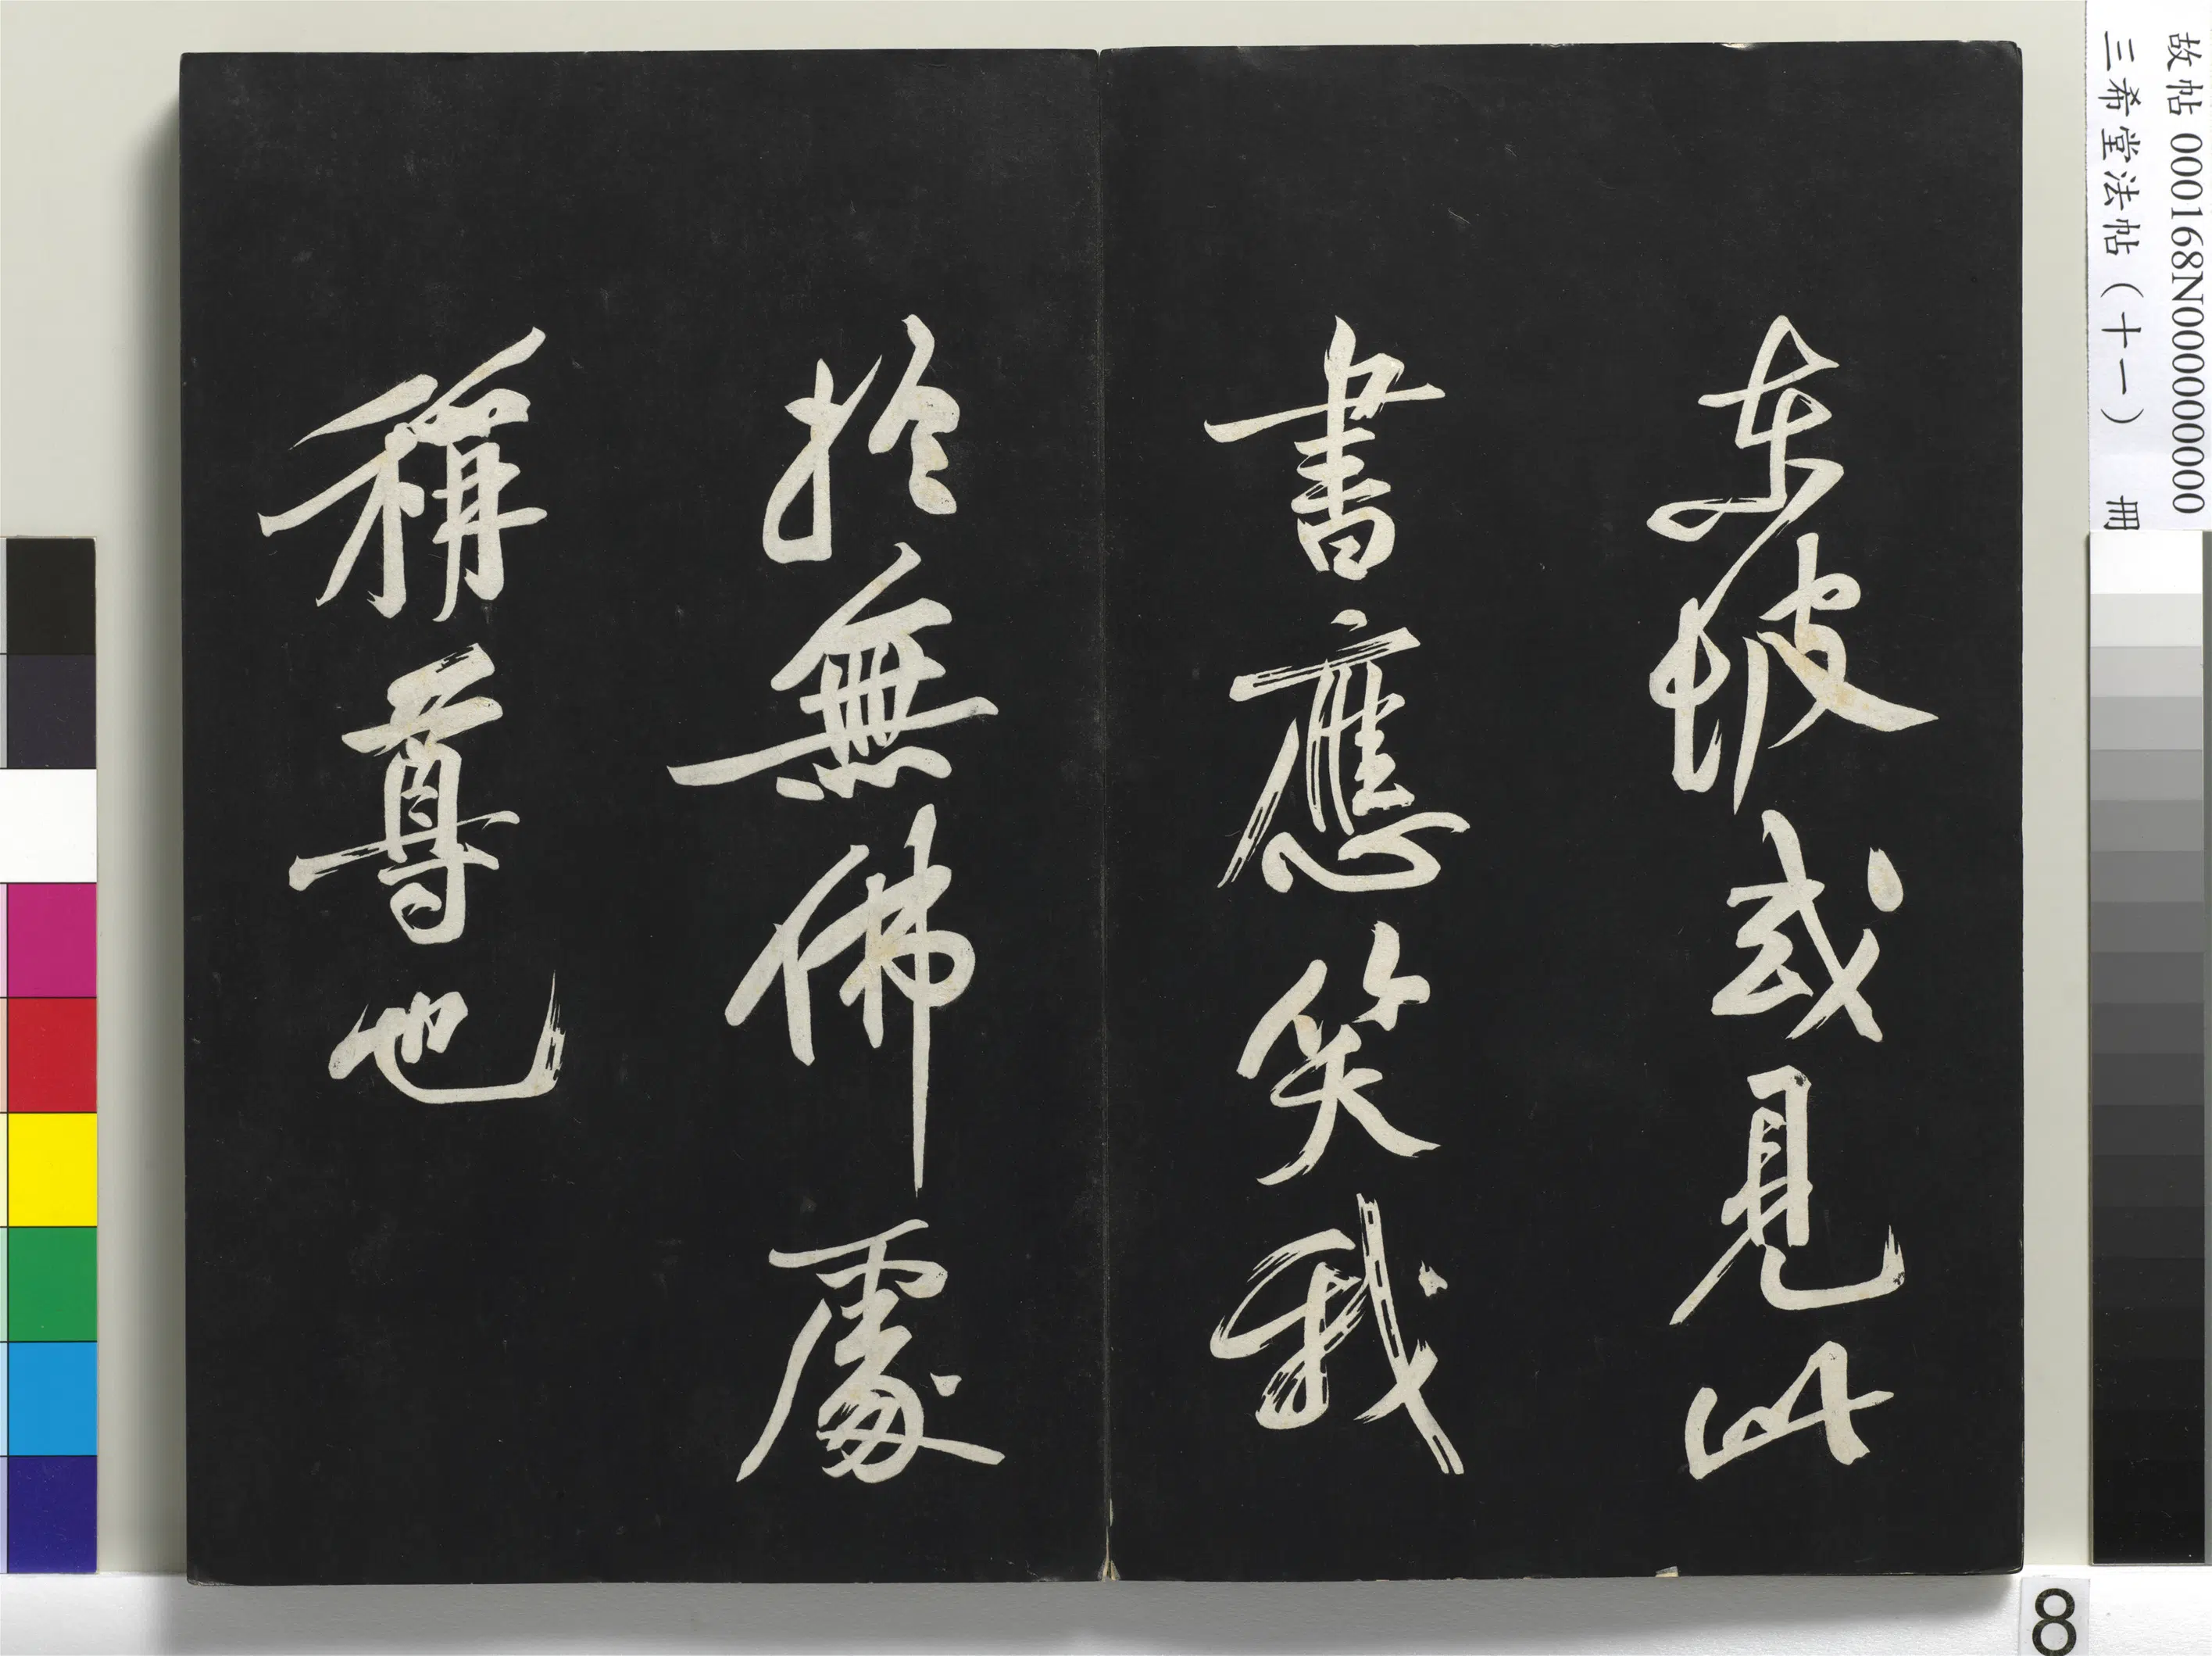 故帖 000168N000000000
三希堂法帖（十一） 冊
東坡或見此
書應笑我
於無佛處
稱尊也
8